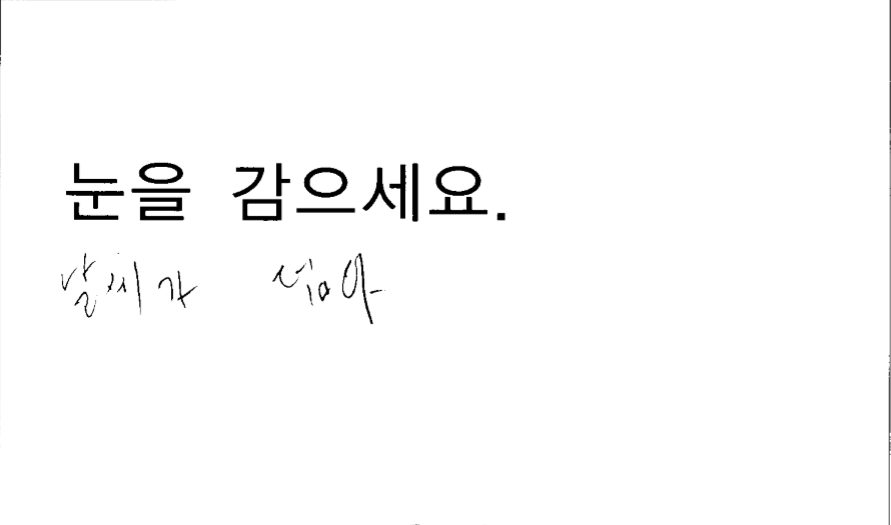 눈을 감으세요.
날씨가